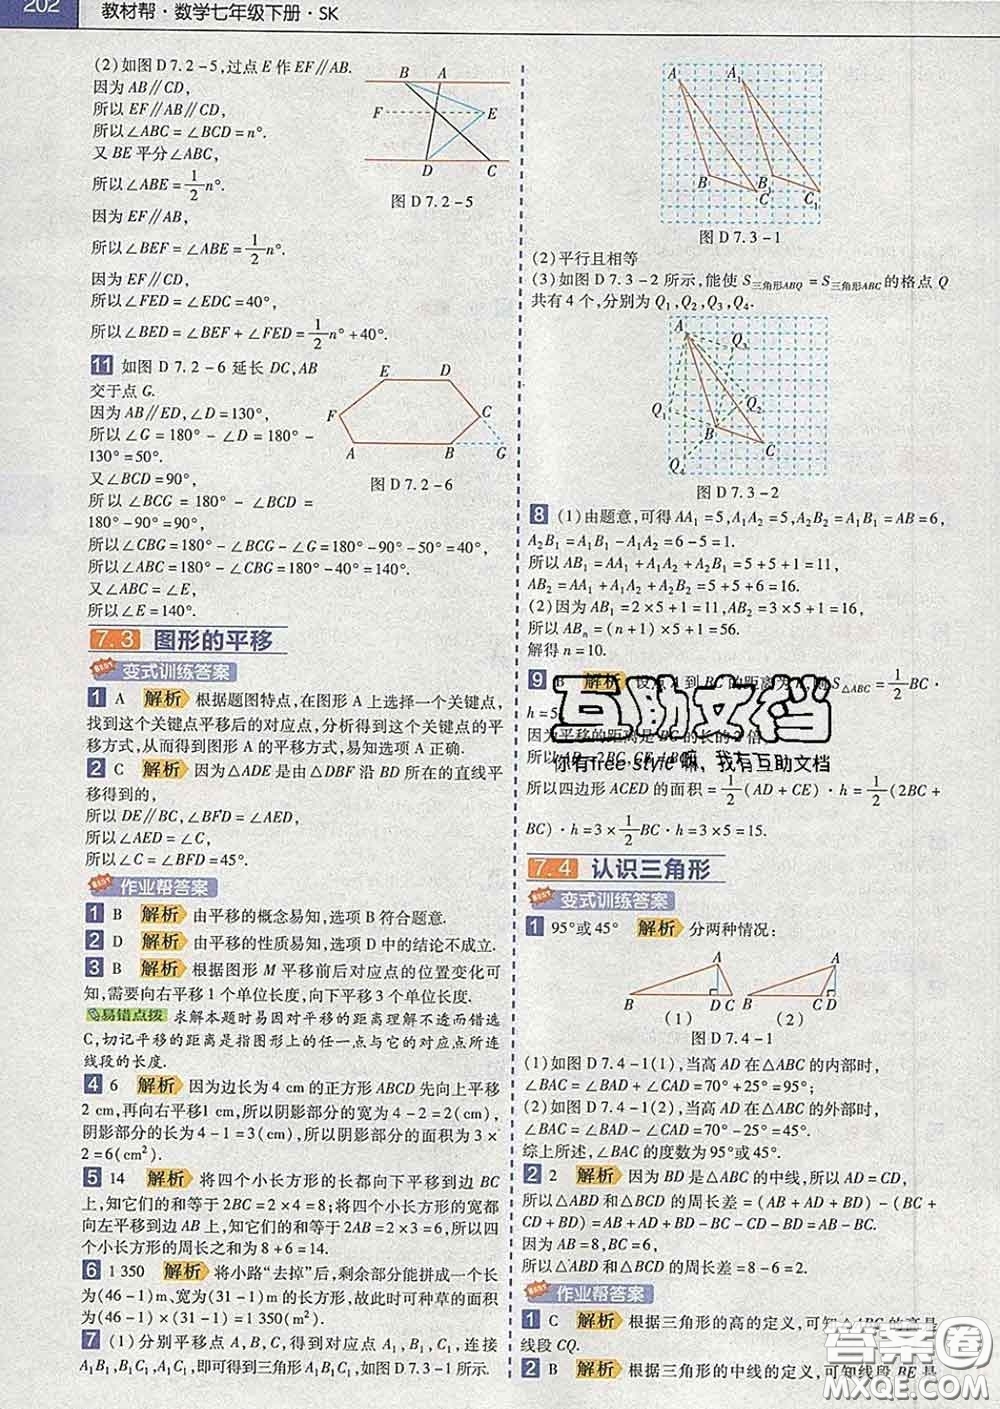 202 教材帮·数学七年级下册·SK
(2)如图D7.2-5,过点E作EF∥AB.
因为AB∥CD,
所以EF∥AB∥CD,
所以∠ABC=∠BCD=n°.
又BE平分∠ABC,
所以∠ABE=1/2n°.
因为EF∥AB,
所以∠BEF=∠ABE=1/2n°.
因为EF∥CD,
所以∠FED=∠EDC=40°,
所以∠BED=∠BEF+∠FED=1/2n°+40°.
B A
F E
D C
图D7.2-5
11 如图D7.2-6延长DC,AB
交于点G.
因为AB∥ED,∠D=130°,
所以∠G=180°-∠D=180°-
130°=50°.
又∠BCD=90°,
所以∠BCG=180°-∠BCD=
180°-90°=90°,
所以∠CBG=180°-∠BCG-∠G=180°-90°-50°=40°,
所以∠ABC=180°-∠CBG=180°-40°=140°.
又∠ABC=∠E,
所以∠E=140°.
E D
F C
A B G
图D7.2-6
7.3 图形的平移
变式训练答案
1 A 解析 根据题图特点,在图形A上选择一个关键点,
找到这个关键点平移后的对应点,分析得到这个关键点的平
移方式,从而得到图形A的平移方式,易知选项A正确.
2 C 解析 因为△ADE是由△DBF沿BD所在的直线平
移得到的,
所以DE∥BC,∠BFD=∠AED,
所以∠AED=∠C,
所以∠C=∠BFD=45°.
作业帮答案
1 B 解析 由平移的概念易知,选项B符合题意.
2 D 解析 由平移的性质易知,选项D中的结论不成立.
3 B 解析 根据图形M平移前后对应点的位置变化可
知,需要向右平移1个单位长度,向下平移3个单位长度.
易错点拨 求解本题时易因对平移的距离理解不透而错选
C,切记平移的距离是指图形上的任一点与它的对应点所连
线段的长度.
4 6 解析 因为边长为4 cm的正方形ABCD先向上平移
2 cm,再向右平移1 cm,所以阴影部分的宽为4-2=2(cm),
阴影部分的长为4-1=3(cm),所以阴影部分的面积为3×
2=6(cm²).
5 14 解析 将四个小长方形的长都向下平移到边BC
上,知它们的和等于2BC=2×4=8;将四个小长方形的宽都
向左平移到边AB上,知它们的和等于2AB=2×3=6,所以四
个小长方形的周长之和为8+6=14.
6 1 350 解析 将小路“去掉”后,剩余部分能拼成一个长
为(46-1)m、宽为(31-1)m的长方形,故此时可种草的面积
为(46-1)×(31-1)=1 350(m²).
7 (1)分别平移点A,B,C,得到对应点A₁,B₁,C₁,连接
A₁B₁,B₁C₁,A₁C₁,即可得到三角形A₁B₁C₁,如图D7.3-1所示.
A A₁
B B₁
C C₁
图D7.3-1
(2)平行且相等
(3)如图D7.3-2所示,能使S三角形ABQ=S三角形ABC的格点Q
共有4个,分别为Q₁,Q₂,Q₃,Q₄.
A Q₃
Q₁ Q₂
B C
Q₄
图D7.3-2
8 (1)由题意,可得AA₁=5,A₁A₂=5,A₂B₂=A₁B₁=AB=6,
A₂B₁=A₁B₁-A₁A₂=6-5=1.
所以AB₁=AA₁+A₁A₂+A₂B₁=5+5+1=11,
AB₂=AA₁+A₁A₂+A₂B₂=5+5+6=16.
(2)因为AB₁=2×5+1=11,AB₂=3×5+1=16,
所以ABₙ=(n+1)×5+1=56.
解得n=10.
9 B 解析 设点A到BC的距离为h,则S△ABC=1/2BC·
h=5
因为平移的距离是BC的长的2倍
所以AD=2BC,CE=BC
互助文档
你有free style嘛,我有互助文档
所以四边形ACED的面积=1/2(AD+CE)·h=1/2(2BC+
BC)·h=3×1/2BC·h=3×5=15.
7.4 认识三角形
变式训练答案
1 95°或45° 解析 分两种情况:
A A
B D C B C D
(1) (2)
图D7.4-1
(1)如图D7.4-1(1),当高AD在△ABC的内部时,
∠BAC=∠BAD+∠CAD=70°+25°=95°;
(2)如图D7.4-1(2),当高AD在△ABC的外部时,
∠BAC=∠BAD-∠CAD=70°-25°=45°.
综上所述,∠BAC的度数为95°或45°.
2 2 解析 因为BD是△ABC的中线,所以AD=CD,
所以△ABD和△BCD的周长差=(AB+AD+BD)-(BC+
CD+BD)=AB+AD+BD-BC-CD-BD=AB-BC.
因为AB=8,BC=6,
所以△ABD和△BCD的周长差=8-6=2.
作业帮答案
1 C 解析 根据三角形的高的定义,可知△ABC的高是
线段CQ.
2 B 解析 根据三角形的中线的定义,可知线段BE是
答案圈
MXQE.COM